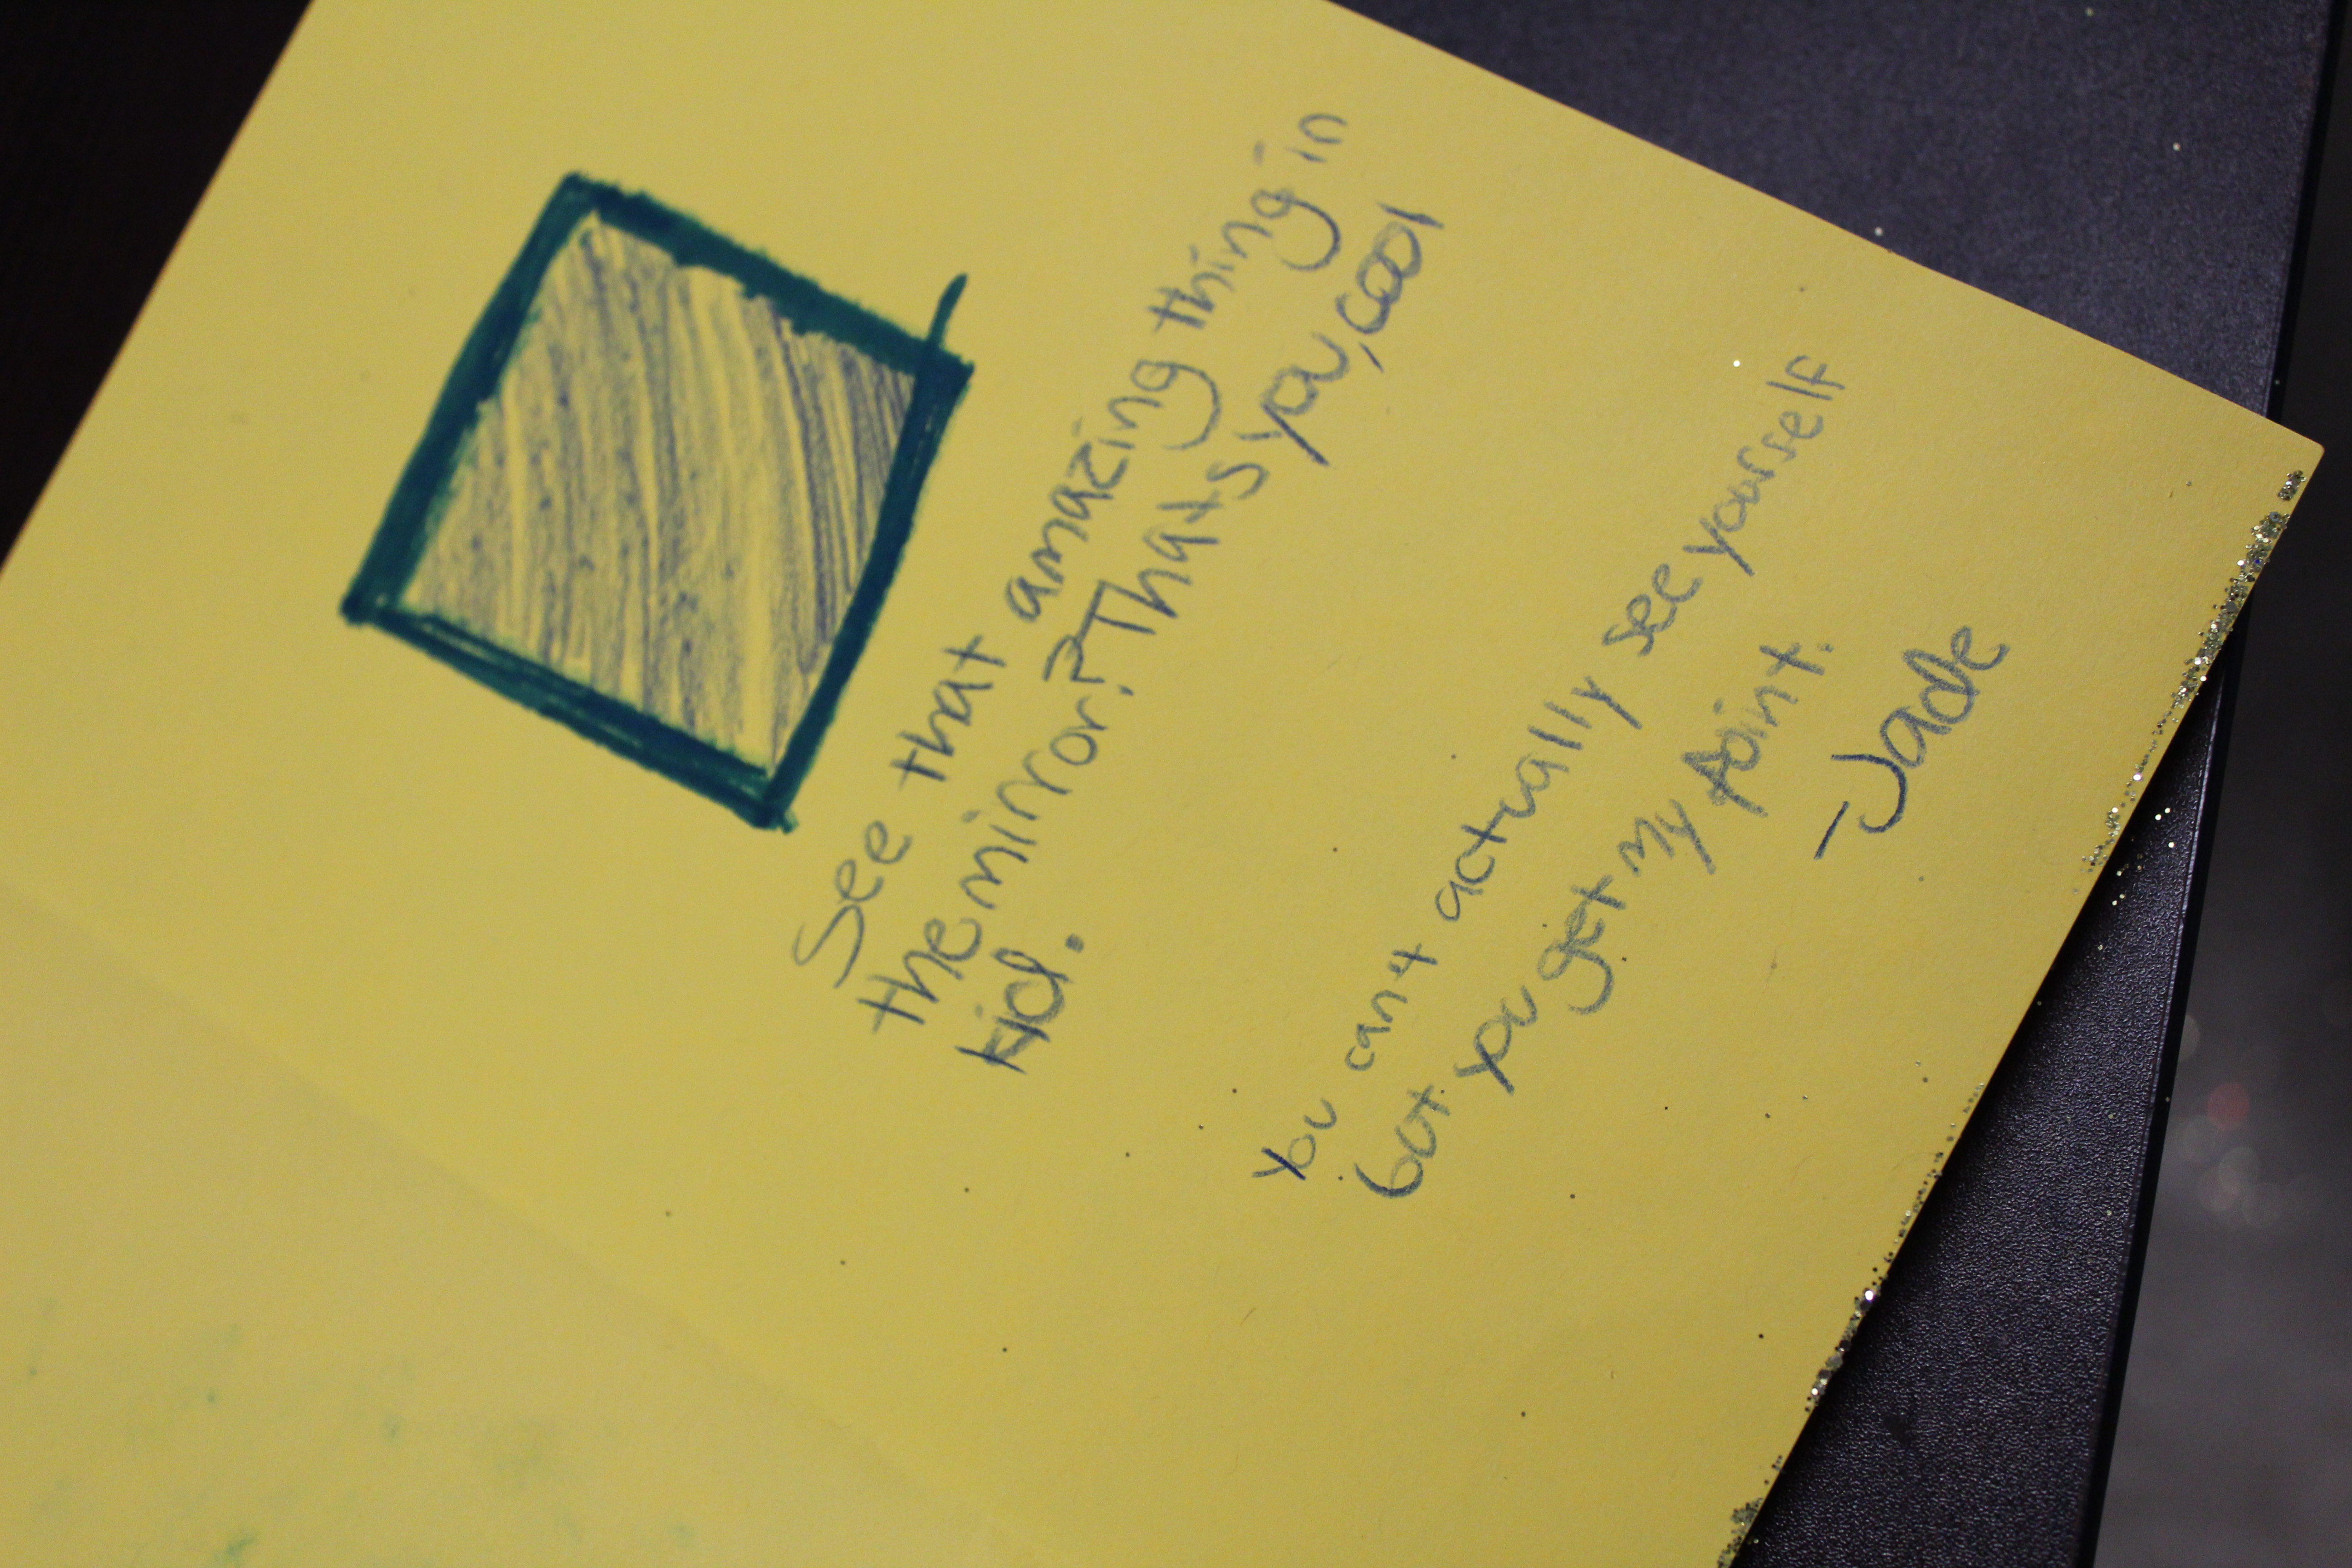 See that amazing thing in
the mirror? Thats you, cool
kid.
You cant actually see yourself
but you get my point.
-Jade